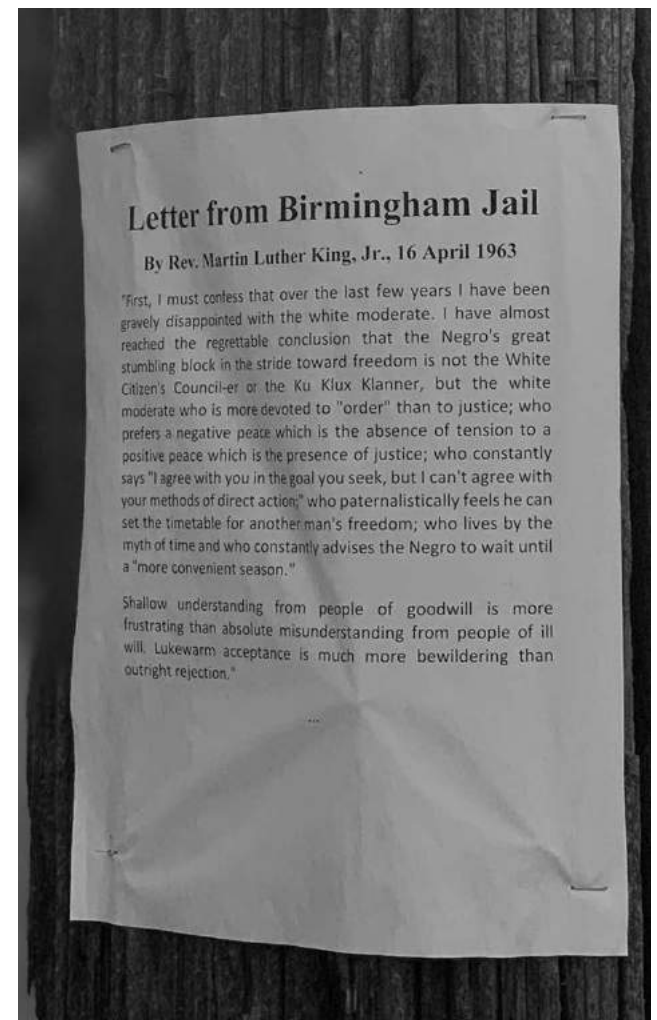 Letter from Birmingham Jail
By Rev. Martin Luther King, Jr., 16 April 1963
"First, I must confess that over the last few years I have been
gravely disappointed with the white moderate. I have almost
reached the regrettable conclusion that the Negro's great
stumbling block in the stride toward freedom is not the White
Citizen's Council-er or the Ku Klux Klanner, but the white
moderate who is more devoted to "order" than to justice; who
prefers a negative peace which is the absence of tension to a
positive peace which is the presence of justice; who constantly
says "I agree with you in the goal you seek, but I can't agree with
your methods of direct action;" who paternalistically feels he can
set the timetable for another man's freedom; who lives by the
myth of time and who constantly advises the Negro to wait until
a "more convenient season."
Shallow understanding from people of goodwill is more
frustrating than absolute misunderstanding from people of ill
will. Lukewarm acceptance is much more bewildering than
outright rejection."